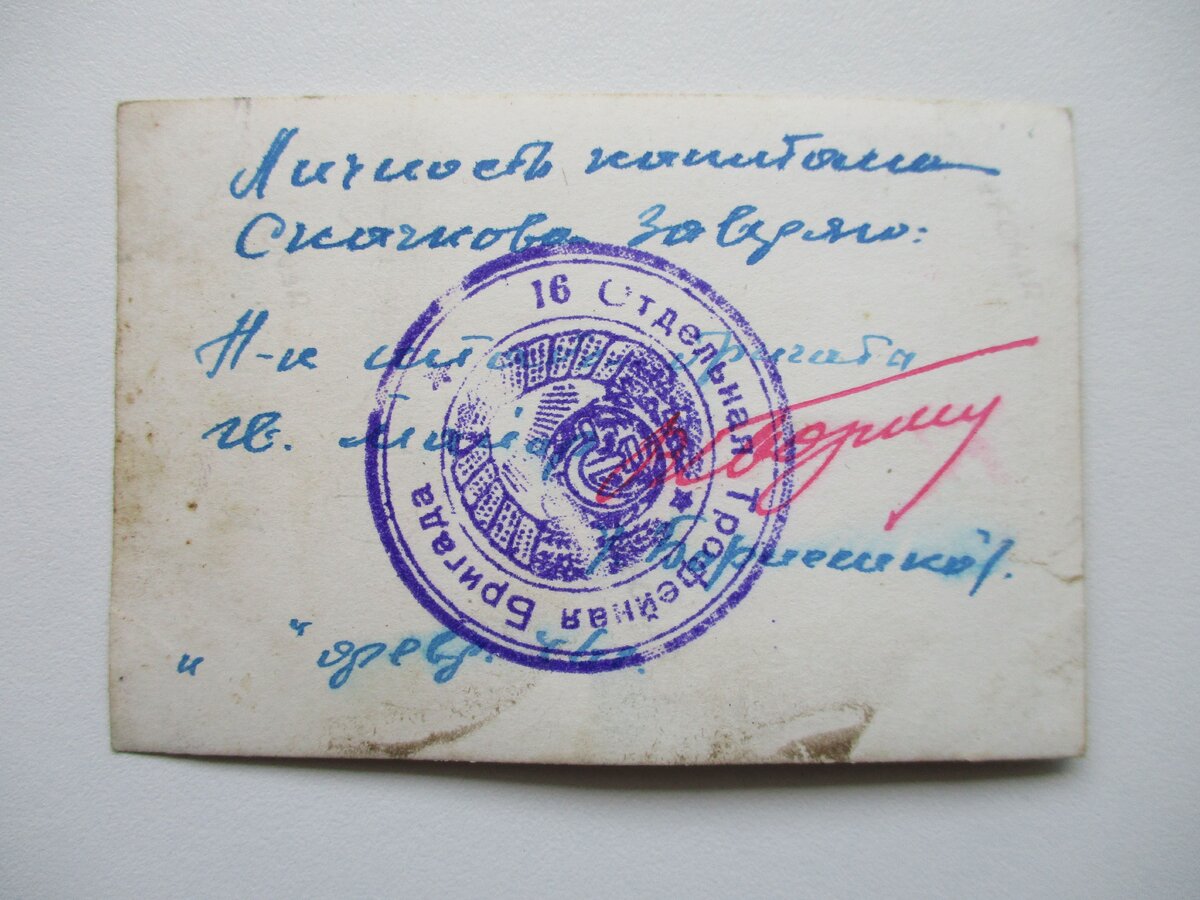 Личность капитана
Скачкова Заверяю:
Н-к штаба бригады
гв. Майор
/Барышников/.
" " февр. 46 г.
16 Отдельная Трофейная Бригада